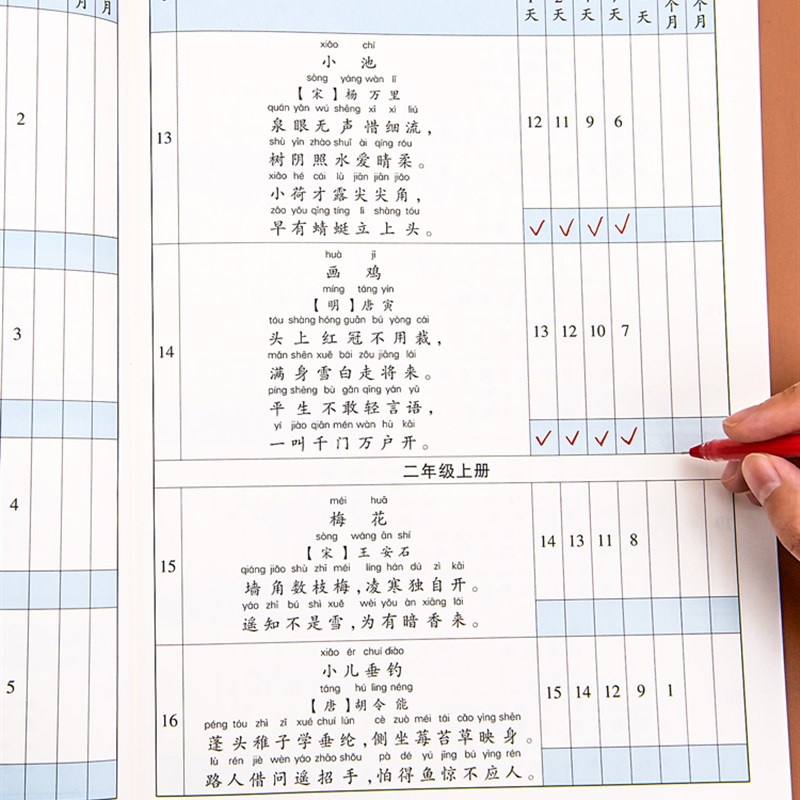 月 月
2
3
4
5
天 天 天 天 天 个月 个月
13
xiǎo chí
小 池
sòng yáng wàn lǐ
【宋】杨 万 里
quán yǎn wú shēng xī xì liú
泉 眼 无 声 惜 细 流,
shù yīn zhào shuǐ ài qíng róu
树 阴 照 水 爱 晴 柔。
xiǎo hé cái lù jiān jiān jiǎo
小 荷 才 露 尖 尖 角,
zǎo yǒu qīng tíng lì shàng tóu
早 有 蜻 蜓 立 上 头。
12 11 9 6
14
huà jī
画 鸡
míng táng yín
【明】唐 寅
tóu shàng hóng guān bú yòng cái
头 上 红 冠 不 用 裁,
mǎn shēn xuě bái zǒu jiāng lái
满 身 雪 白 走 将 来。
píng shēng bù gǎn qīng yán yǔ
平 生 不 敢 轻 言 语,
yí jiào qiān mén wàn hù kāi
一 叫 千 门 万 户 开。
13 12 10 7
二年级上册
15
méi huā
梅 花
sòng wáng ān shí
【宋】王 安 石
qiáng jiǎo shù zhī méi líng hán dú zì kāi
墙 角 数 枝 梅,凌 寒 独 自 开。
yáo zhī bú shì xuě wèi yǒu àn xiāng lái
遥 知 不 是 雪,为 有 暗 香 来。
14 13 11 8
16
xiǎo ér chuí diào
小 儿 垂 钓
táng hú lìng néng
【唐】胡 令 能
péng tóu zhì zǐ xué chuí lún cè zuò méi tái cǎo yìng shēn
蓬 头 稚 子 学 垂 纶,侧 坐 莓 苔 草 映 身。
lù rén jiè wèn yáo zhāo shǒu pà dé yú jīng bú yìng rén
路 人 借 问 遥 招 手,怕 得 鱼 惊 不 应 人。
15 14 12 9 1